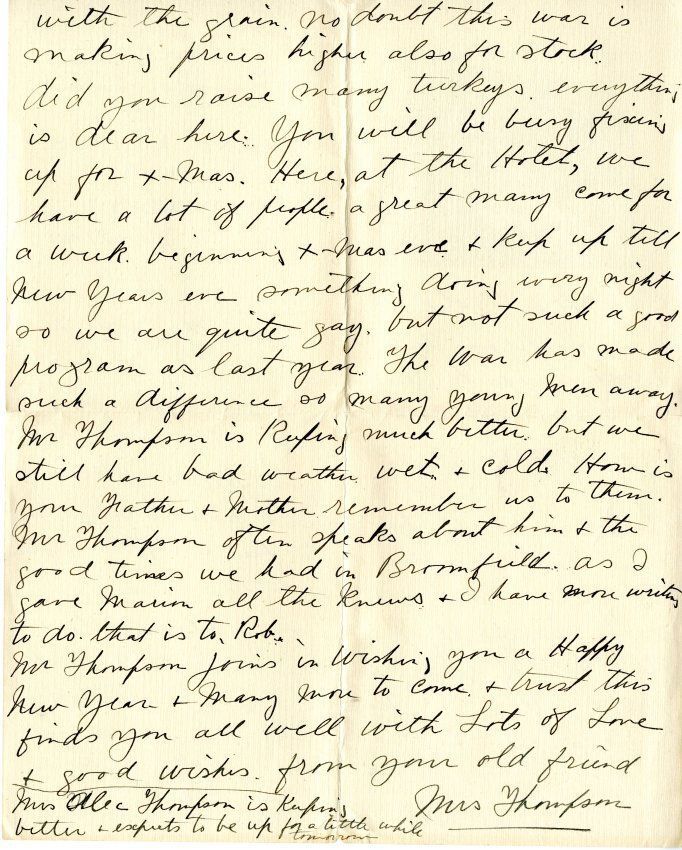 with the grain. no doubt this war is
making prices higher also for stock.
did you raise many turkeys. everything
is dear here. You will be busy fixing
up for X-Mas. Here, at the Hotel, we
have a lot of people. a great many come for
a week. beginning X-Mas eve & keep up till
New Years eve something doing every night
so we are quite gay. but not such a good
program as last year. The war has made
such a difference so many young men away.
Mr Thompson is keeping much better. but we
still have bad weather wet. & cold. How is
your Father & Mother. remember us to them.
Mr Thompson often speaks about him & the
good times we had in Broomfield. as I
gave Marion all the knews & I have more writing
to do. that is to, Rob.
Mr Thompson joins in Wishing you a Happy
New Year & Many More to come. & trust this
finds you all well with Lots of Love
& good wishes. from your old friend
Mrs Thompson
Mrs Alec Thompson is keeping
better & expects to be up for a little while
tomorrow